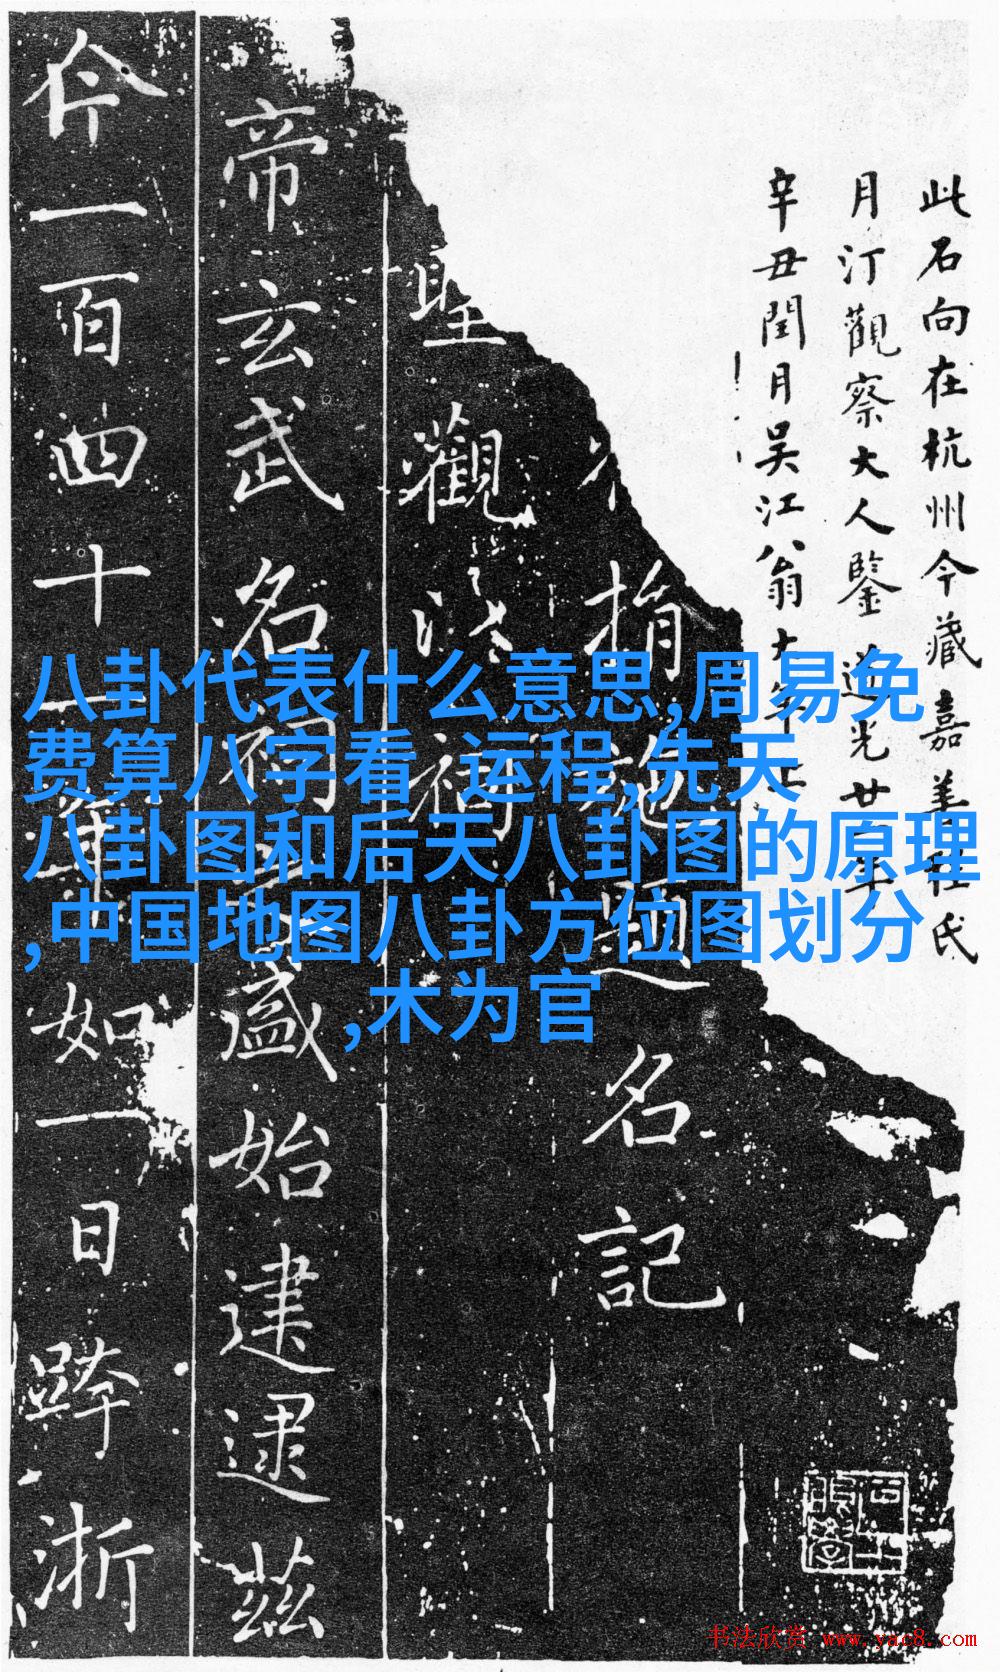 此石向在杭州今藏嘉善程氏
月汀觀察大人鑒道光廿年
辛丑閏月吳江翁大年
指施題名記
聖觀祠
帝玄武名祠盛始建逮茲
今一百四十二年如一日蹕浙
八卦代表什么意思,周易免
费算八字看 运程,先天
八卦图和后天八卦图的原理
,中国地图八卦方位图划分
,木为官
书法欣赏 www.yac8.com